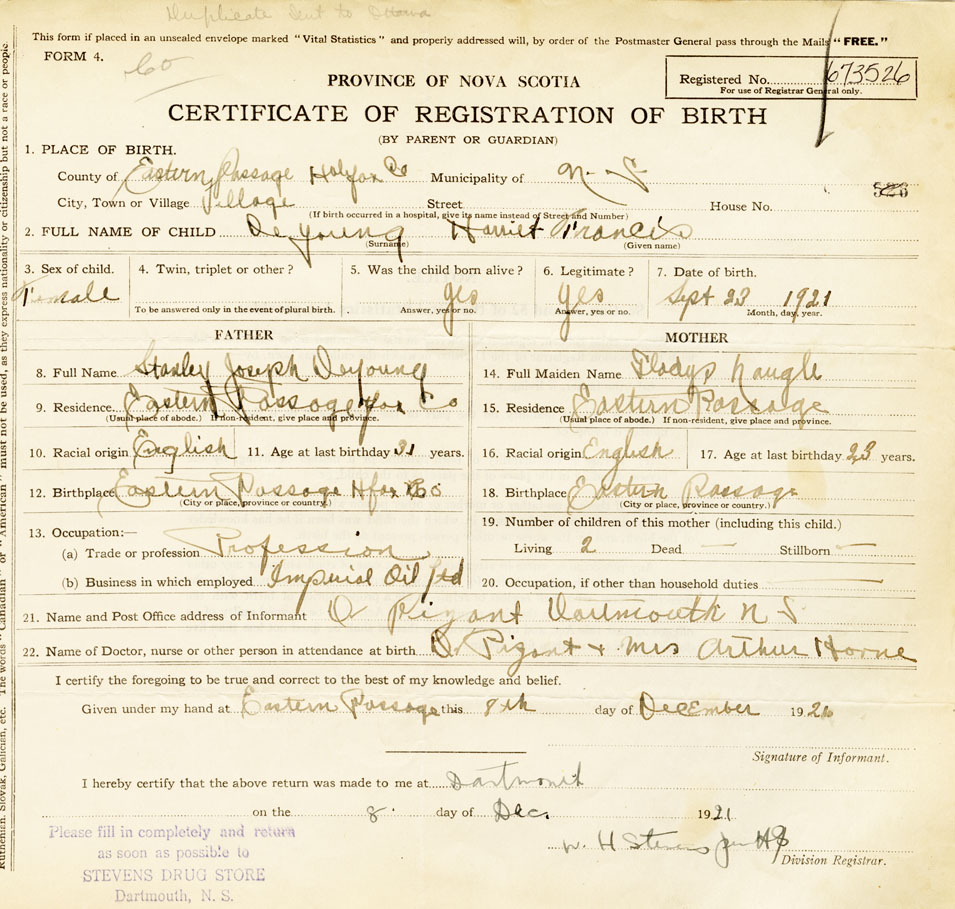 Duplicate sent to Ottawa
This form if placed in an unsealed envelope marked "Vital Statistics" and properly addressed will, by order of the Postmaster General pass through the Mails "FREE."
FORM 4.
PROVINCE OF NOVA SCOTIA
Registered No. 673526
For use of Registrar General only.
CERTIFICATE OF REGISTRATION OF BIRTH
(BY PARENT OR GUARDIAN)
1. PLACE OF BIRTH.
County of Eastern Passage Halifax Co Municipality of N. S.
526
City, Town or Village Village Street House No.
(If birth occurred in a hospital, give its name instead of Street and Number)
2. FULL NAME OF CHILD DeYoung Harriet Francis
(Surname) (Given name)
3. Sex of child. 4. Twin, triplet or other? 5. Was the child born alive? 6. Legitimate? 7. Date of birth.
Female yes yes Sept 23 1921
To be answered only in the event of plural birth. Answer, yes or no. Answer, yes or no. Month, day, year.
FATHER MOTHER
8. Full Name Stanley Joseph Deyoung 14. Full Maiden Name Gladys Naugle
9. Residence Eastern Passage Hfax Co 15. Residence Eastern Passage
(Usual place of abode.) If non-resident, give place and province. (Usual place of abode.) If non-resident, give place and province.
10. Racial origin English 11. Age at last birthday 31 years. 16. Racial origin English 17. Age at last birthday 23 years.
12. Birthplace Eastern Passage Hfax Co 18. Birthplace Eastern Passage
(City or place, province or country.) (City or place, province or country.)
13. Occupation:— 19. Number of children of this mother (including this child.)
(a) Trade or profession Profession Living 2 Dead — Stillborn —
(b) Business in which employed Imperial Oil Ltd 20. Occupation, if other than household duties —
21. Name and Post Office address of Informant Dr Pigant Dartmouth N S
22. Name of Doctor, nurse or other person in attendance at birth Dr Pigant + Mrs Arthur Horne
I certify the foregoing to be true and correct to the best of my knowledge and belief.
Given under my hand at Eastern Passage this 8th day of December 192
Signature of Informant.
I hereby certify that the above return was made to me at Dartmouth
on the 8. day of Dec. 1921
W H Stevens
Division Registrar.
Please fill in completely and return
as soon as possible to
STEVENS DRUG STORE
Dartmouth, N. S.
Ruthenian, Slovak, Galician, etc. The words "Canadian" or "American" must not be used, as they express nationality or citizenship but not a race or people.